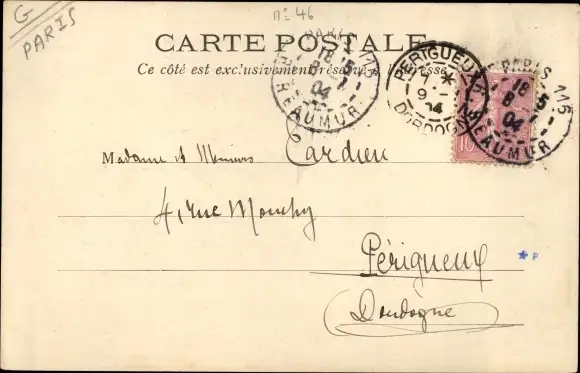 G
PARIS
nº 46
CARTE POSTALE
Ce côté est exclusivement réservé à l'adresse
PARIS 115
18 5
8 - 7
04
R. REAUMUR
PERIGUEUX
7 *
9 - 7
04
DORDOGNE
PARIS 115
18 5
8
04
R. REAUMUR
10
Madame et Monsieur Cardieu
4, rue Mouchy
Périgueux
Dordogne
P